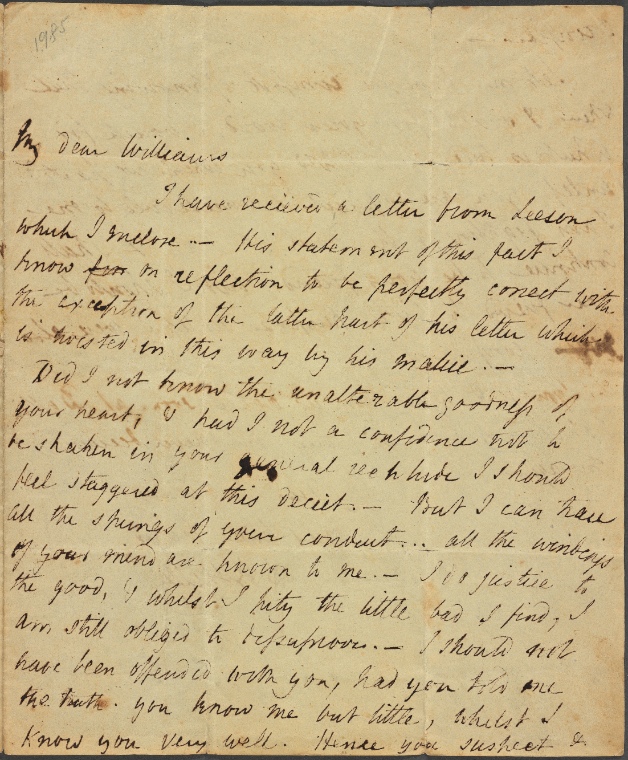 1985
My dear Williams
I have recieved a letter from Leeson
which I inclose. — His statement of this fact I
know for on reflection to be perfectly correct with
the exception of the latter part of his letter which
is twisted in this way by his malice. —
Did I not know the unalterable goodness of
your heart, & had I not a confidence not to
be shaken in your general rectitude I should
feel staggered at this deceit. — But I can trace
all the springs of your conduct... all the windings
of your mind are known to me. — I do justice to
the good, & whilst I pity the little bad I find, I
am still obliged to disapprove. — I should not
have been offended with you, had you told me
the truth. you know me but little, whilst I
know you very well. Hence you suspect &